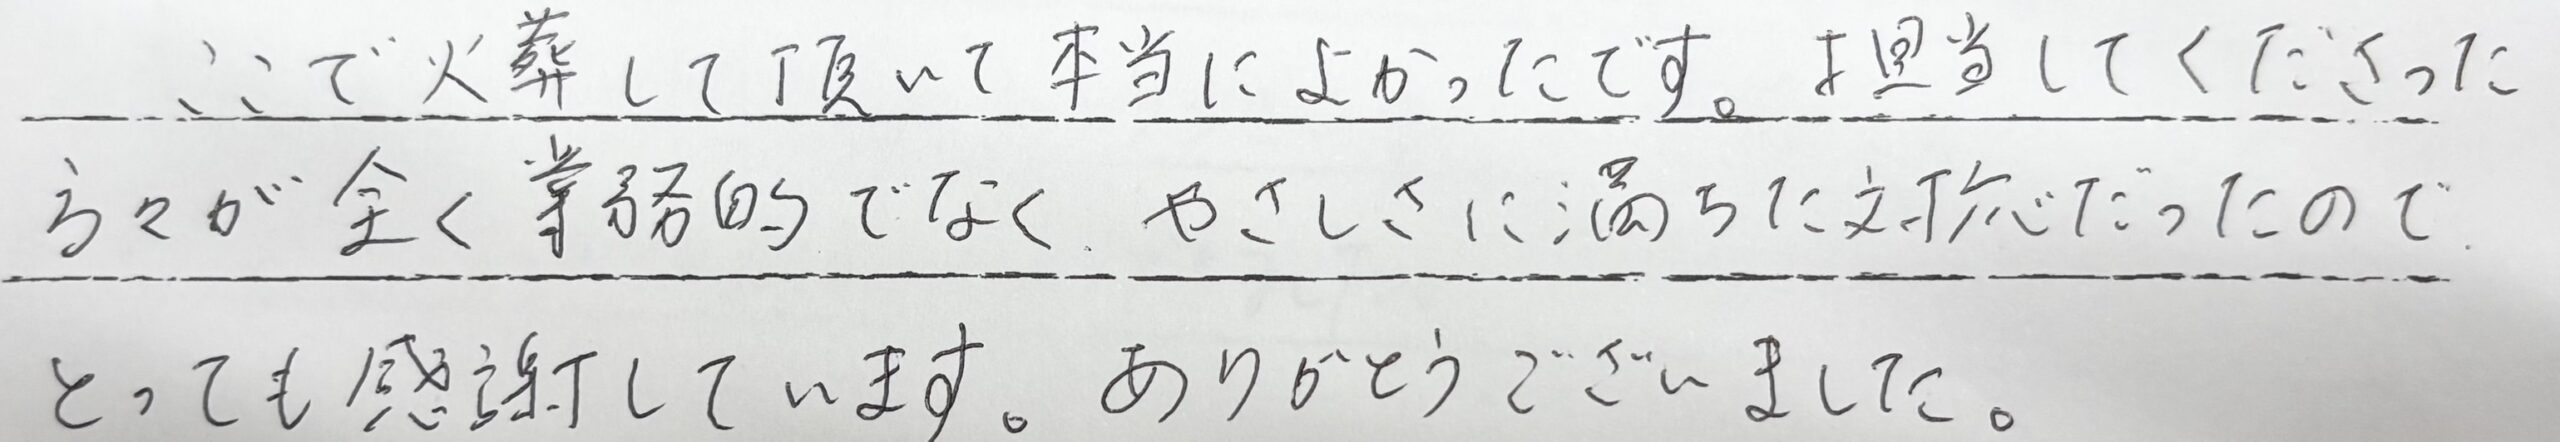 ここで火葬して頂いて本当によかったです。担当してくださった
方々が全く業務的でなく、やさしさに満ちた対応だったので、
とっても感謝しています。ありがとうございました。